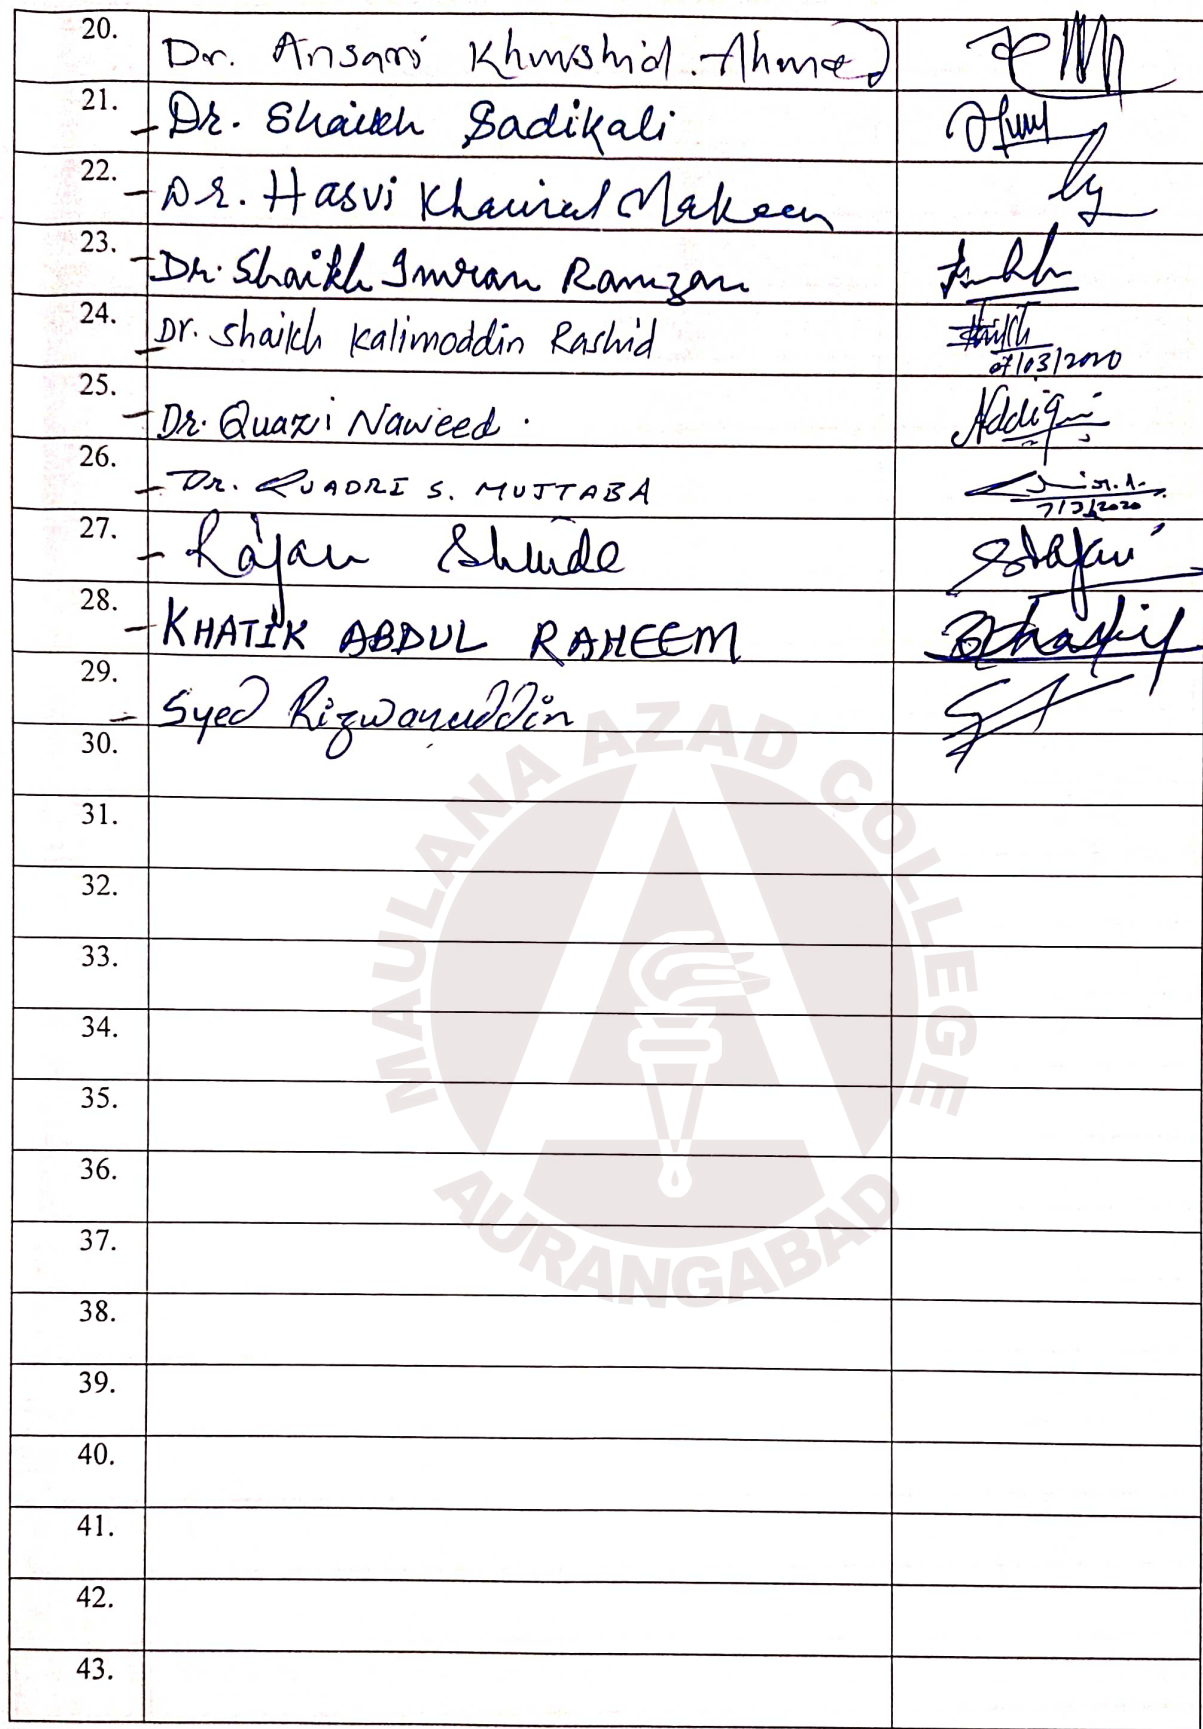 20. Dr. Ansari Khurshid. Ahmed
21. - Dr. Shaikh Sadikali
22. - Dr. Hasvi Khairul Makeen ly
23. - Dr. Shaikh Imran Ramzan
24. - Dr. Shaikh Kalimoddin Rashid Shaikh
07/03/2020
25. - Dr. Quazi Naweed .
26. - Dr. QUADRI S. MUJTABA
7/3/2020
27. - Rajan Shinde SRajan
28. - KHATIK ABDUL RAHEEM
29. - Syed Rizwanuddin
30.
31.
32.
33.
34.
35.
36.
37.
38.
39.
40.
41.
42.
43.
MAULANA AZAD COLLEGE
AURANGABAD